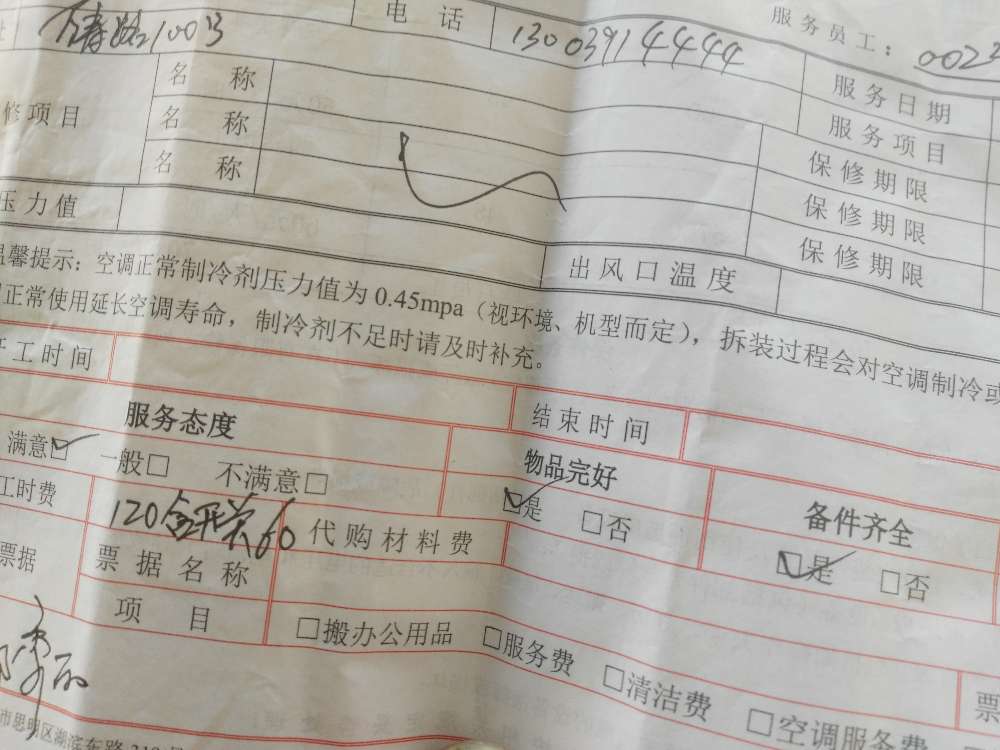 址 路100号 电话 13003914444 服务员工：002
修项目 名称 服务日期
名称 服务项目
名称 保修期限
保修期限
压力值 出风口温度 保修期限
温馨提示：空调正常制冷剂压力值为0.45mpa（视环境、机型而定），拆装过程会对空调制冷或
正常使用延长空调寿命，制冷剂不足时请及时补充。
工时间 结束时间
服务态度 物品完好 备件齐全
满意☑ 一般□ 不满意□ ☑是 □否 ☑是 □否
工时费 120 60 代购材料费
票据 票据名称
项目 □搬办公用品 □服务费 □清洁费 □空调服务费 票
市思明区湖滨东路